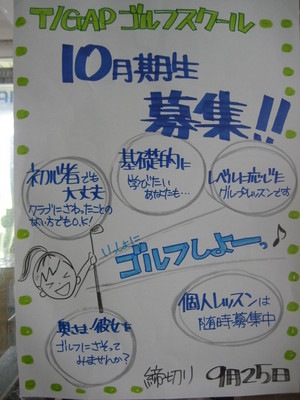 T/GAP ゴルフスクール
10月期生
募集!!
初心者でも
大丈夫
クラブにさわったことの
ない方でもOKよ!
基礎的に
学びたい
あなたも…
レベルに応じた
グループレッスンです
いっしょに
ゴルフしよーっ♪
奥さま・彼女を
ゴルフにさそって
みませんか?
個人レッスンは
随時募集中
締切り 9月25日